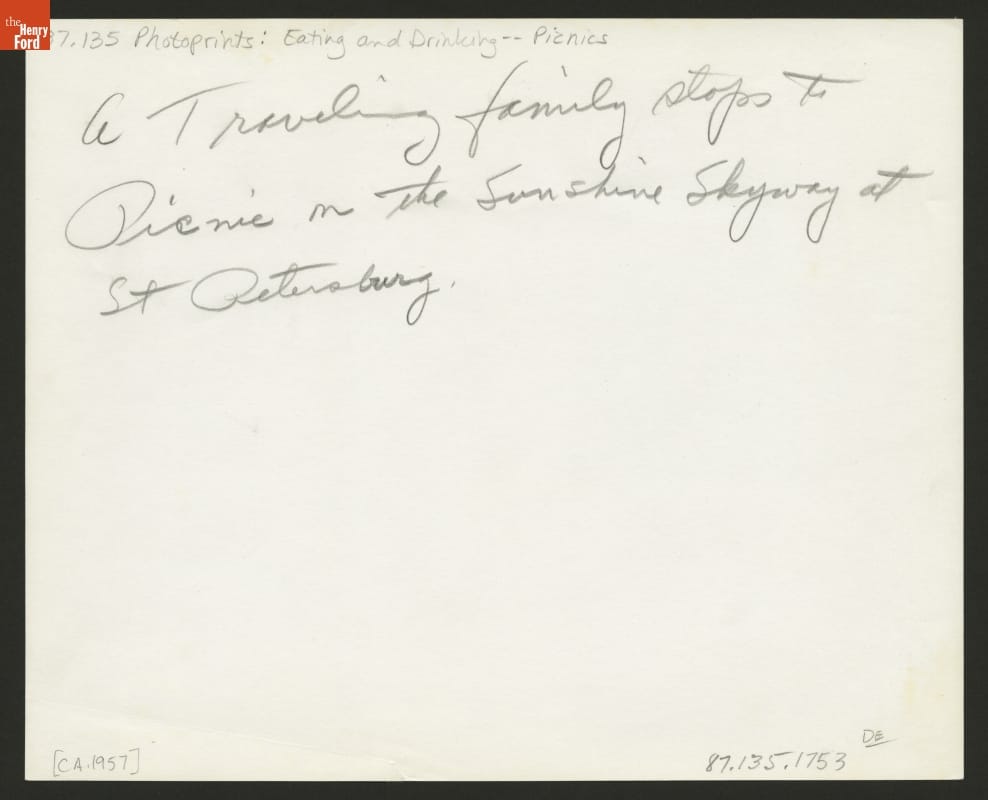 the
Henry
Ford
87.135 Photoprints: Eating and Drinking-- Picnics
A Traveling family stops to
Picnic on the Sunshine Skyway at
St Petersburg.
DE
[CA.1957]
87.135.1753